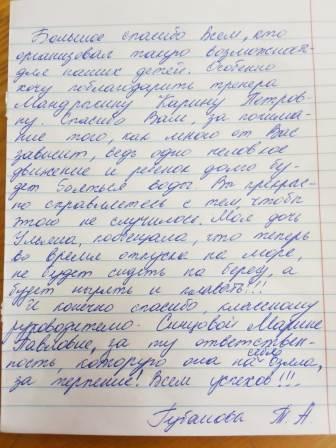 Большое спасибо Всем, кто
организовал такую возможность
для наших детей. Особенно
хочу поблагодарить тренера
Мандрыгину Карину Петров-
ну. Спасибо Вам, за понима-
ние того, как много от Вас
зависит, ведь одно неловкое
движение и ребенок долго бу-
дет бояться воды. Вы прекрас-
но справляетесь с тем, чтобы
этого не случилось. Моя дочь
Ульяна, пообещала, что теперь
во время отпуска на море,
не будет сидеть на берегу, а
будет нырять и плавать!!!
И конечно спасибо, классному
руководителю - Синцовой Марине
Павловне, за ту ответствен-
ность, которую она на себя взяла,
за терпение! Всем успехов!!!.
Губанова Т. А